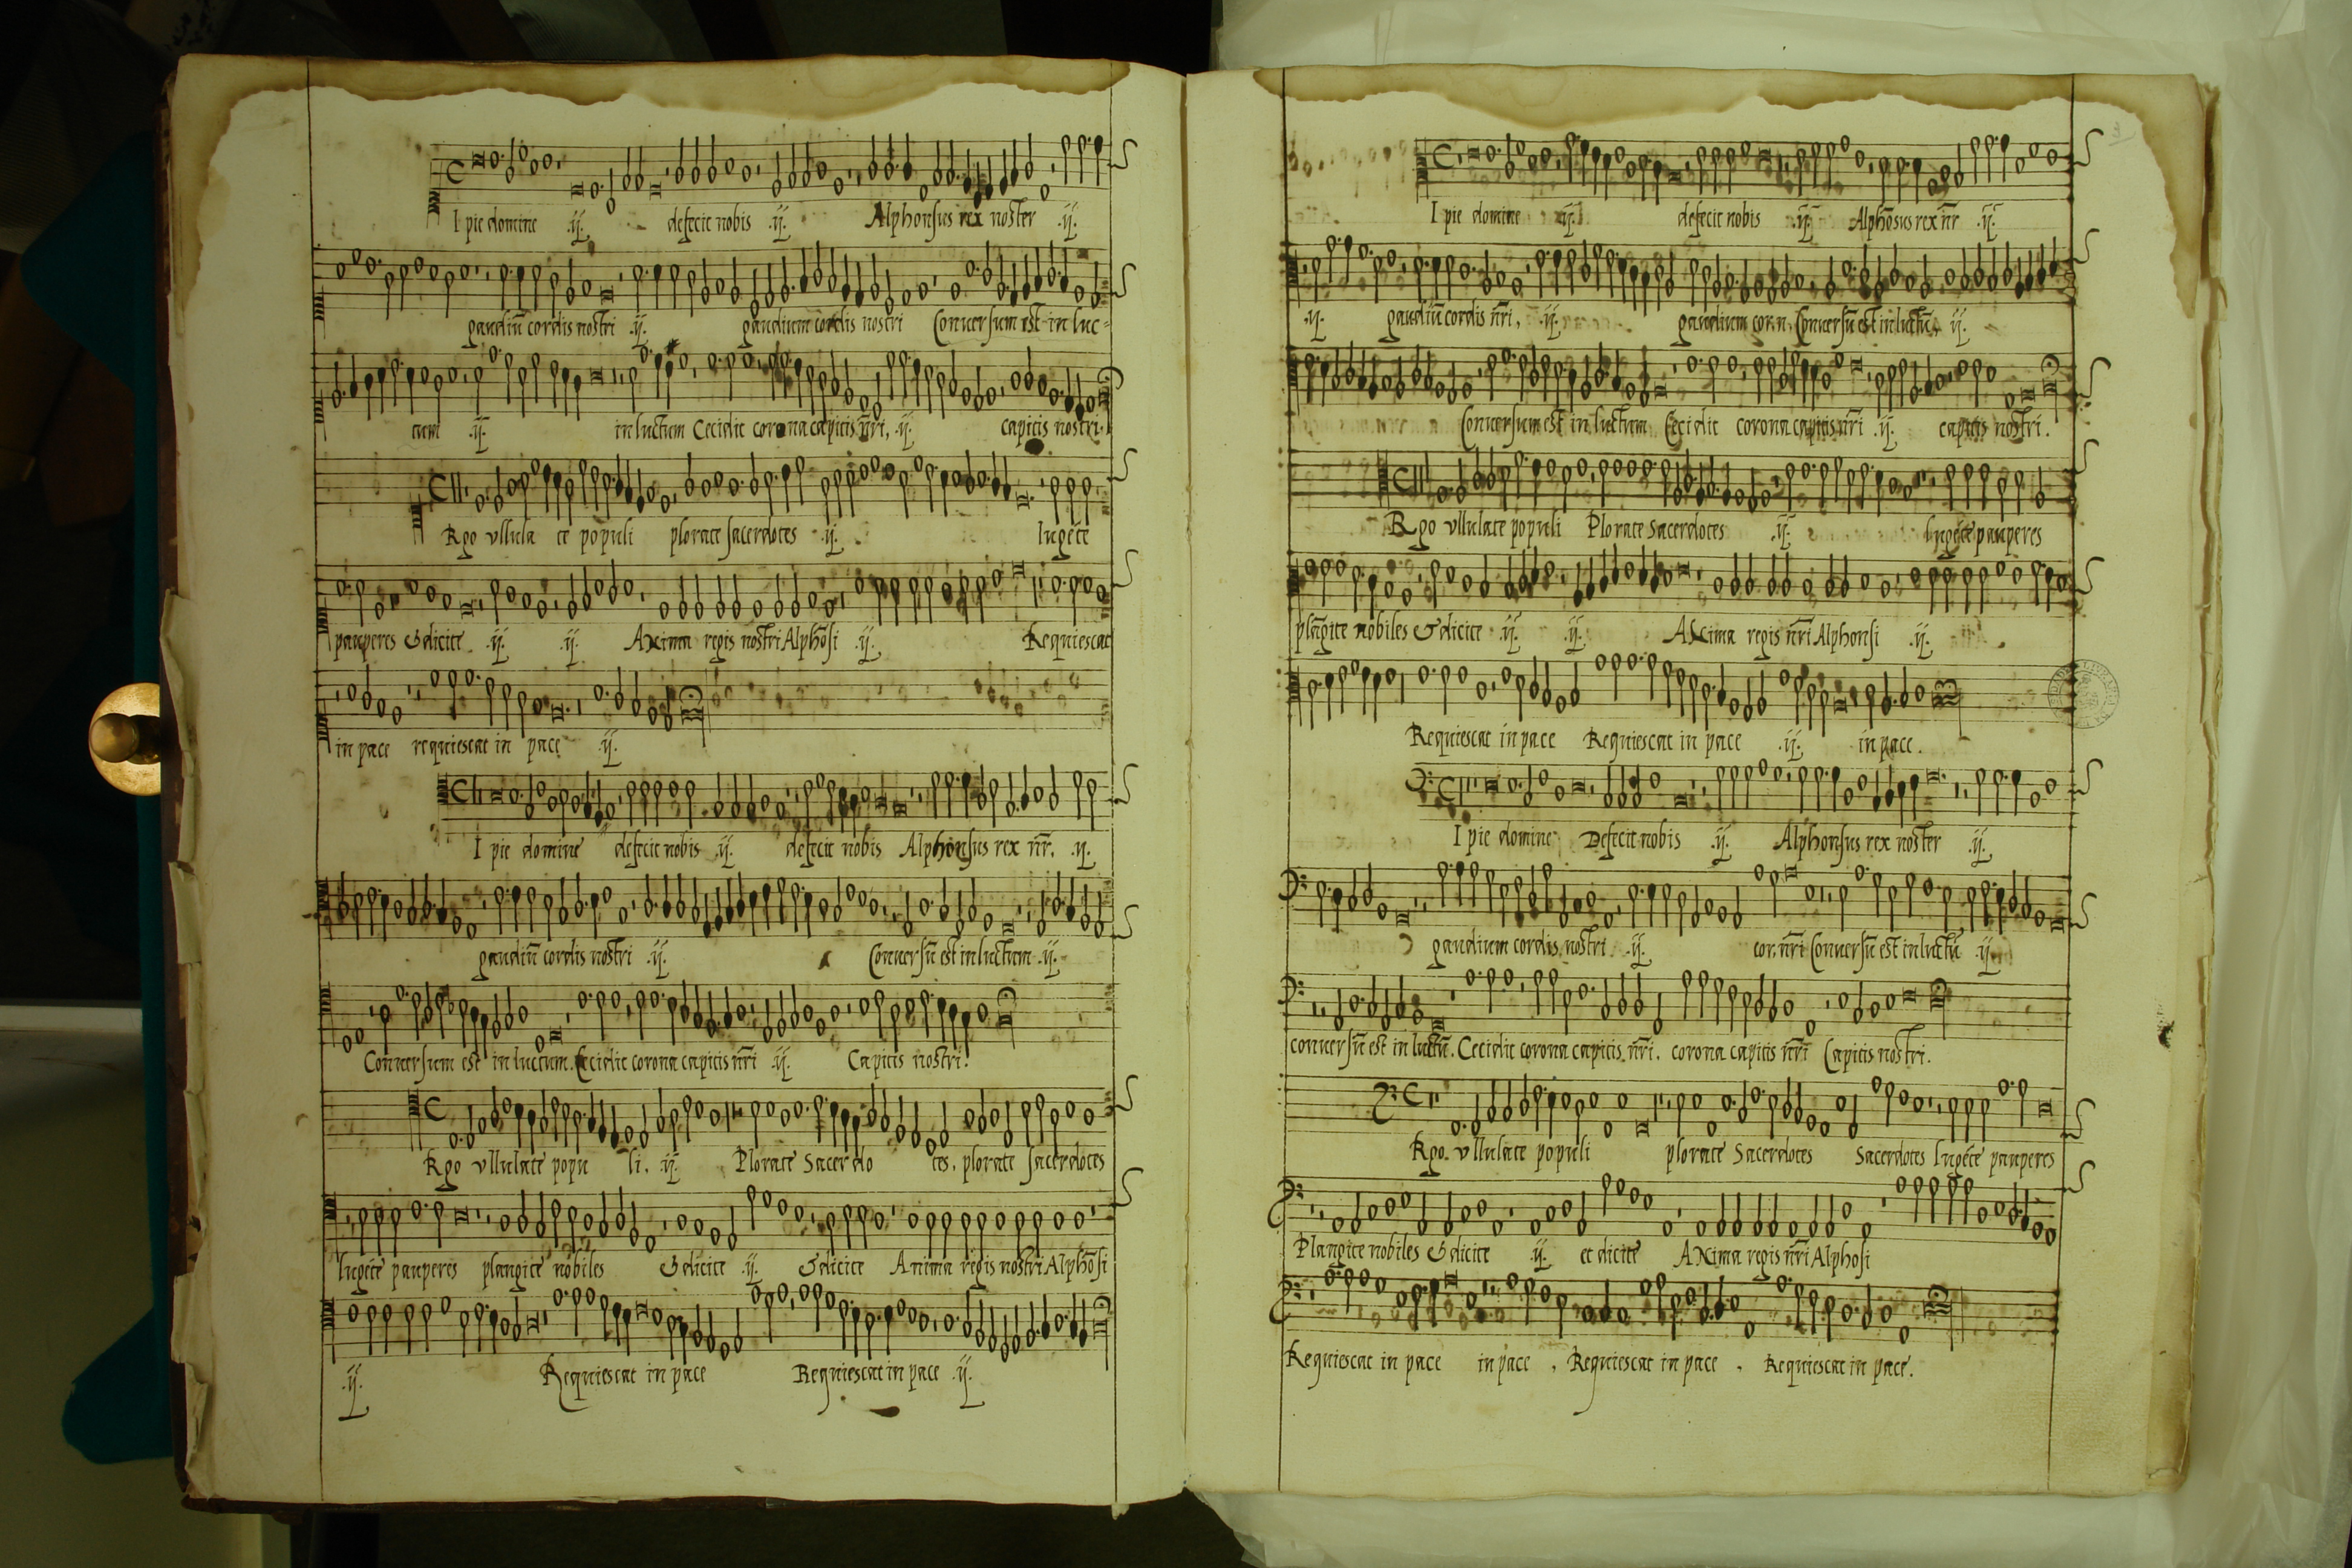 I pie domine .ij. defecit nobis .ij. Alphonsus rex noster .ij.
gaudiū cordis nostri .ij. gaudium cordis nostri Conuersum est in luc-
tum .ij. in luctum Cecidit corona capitis n̄ri, .ij. capitis nostri.
Rgo vllula te populi plorate sacerdotes .ij. lugēte
pauperes & dicite .ij. .ij. Anima regis nostri Alphōsi .ij. Requiescat
in pace requiescat in pace .ij.
I pie domine defecit nobis .ij. defecit nobis Alphonsus rex n̄r. .ij.
gaudiū cordis nostri .ij. Conuersū est in luctum .ij.
Conuersum est in luctum. Cecidit corona capitis n̄ri .ij. Capitis nostri.
Rgo vllulate popu li. .ij. Plorate sacerdo tes, plorate sacerdotes
lugēte pauperes plangite nobiles & dicite .ij. & dicite Anima regis nostri Alphōsi
.ij. Requiescat in pace Requiescat in pace .ij.
I pie domine .ij. defecit nobis .ij. Alphōsus rex n̄r .ij.
.ij. gaudiū cordis n̄ri, .ij. gaudium cor.n. Conuersū est in luctū, .ij.
Conuersum est in luctum Cecidit corona capitis n̄ri .ij. capitis nostri.
Rgo vllulate populi Plorate sacerdotes .ij. lugēte pauperes
plāgite nobiles & dicite .ij. .ij. Anima regis n̄ri Alphonsi .ij.
Requiescat in pace Requiescat in pace .ij. in pace.
I pie domine Defecit nobis .ij. Alphonsus rex noster .ij.
gaudium cordis nostri .ij. cor. n̄ri Conuersū est in luctū .ij.
conuersū est in luctū. Cecidit corona capitis n̄ri. corona capitis n̄ri Capitis nostri.
Rgo. vllulate populi plorate Sacerdotes Sacerdotes lugēte pauperes
Plangite nobiles & dicite .ij. et dicite Anima regis n̄ri Alphōsi
Requiescat in pace in pace , Requiescat in pace . Requiescat in pace.